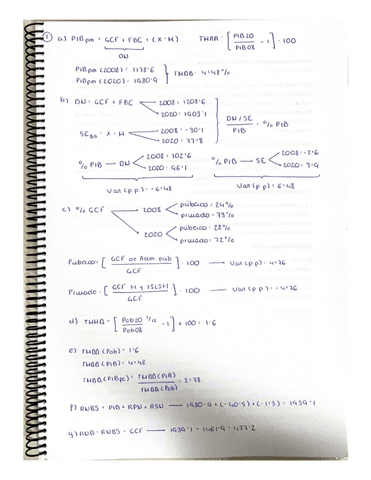 ① a) PIBpm = GCF + FBC + (X - M)   TMAA = [PIB20/PIB08 - 1] · 100
DN
PIBpm (2008) = 1178'6
PIBpm (2020) = 1980'9   TMAA = 4'48%
b) DN = GCF + FBC   2008 = 1208'6
2020 = 1903'1   DN / SE / PIB = % PIB
SEbs = X - M   2008 = -30'1
2020 = 77'8
% PIB → DN   2008 = 102'6   % PIB → SE   2008 = -2'6
2020 = 96'1   2020 = 3'9
Var (p.p) = -6'48   Var (p.p) = 6'48
c) % GCF   2008   público = 24%
privado = 73%
2020   público = 28%
privado = 72%
Público = [GCF de Adm pub / GCF] · 100 → Var (p.p) = 4'76
Privado = [GCF H y ISLSH / GCF] · 100 → Var (p.p) = -4'76
d) TMAA = [Pob20/Pob08 ^1/12 - 1] · 100 = 1'6
e) TMAA (Pob) = 1'6
TMAA (PIB) = 4'48
TMAA (PIBpc) = TMAA (PIB) / TMAA (Pob) = 2'78
f) RNBS = PIB + RPN + RSN → 1980'9 + (-40'5) + (-1'3) = 1939'1
g) ANB = RNBS - GCF → 1939'1 - 1461'9 = 477'2